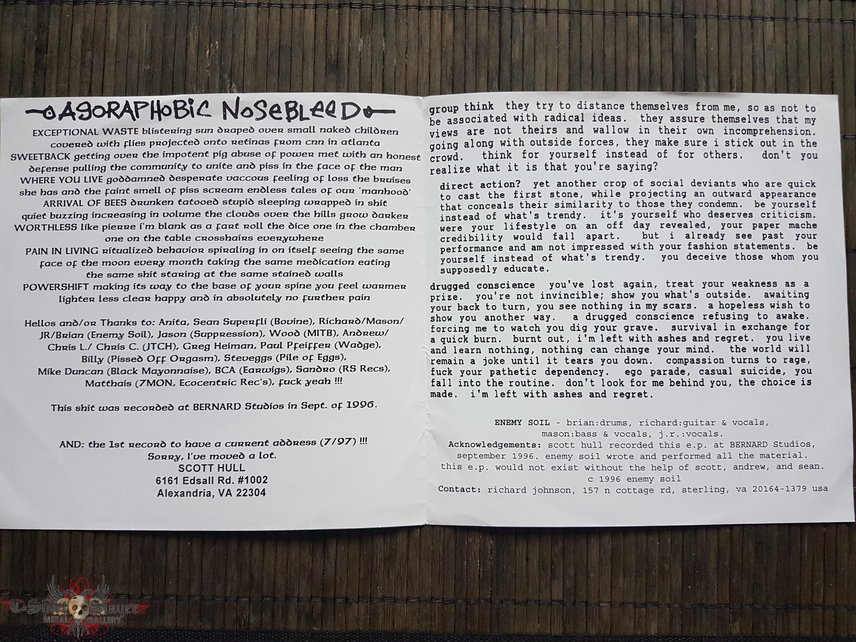 AGORAPHOBIC NOSEBLEED
EXCEPTIONAL WASTE blistering sun draped over small naked children
covered with flies projected onto retinas from cnn in atlanta
SWEETBACK getting over the impotent pig abuse of power met with an honest
defense pulling the community to unite and piss in the face of the man
WHERE YOU LIVE goddamned desperate vaccous feeling of loss the bruises
she has and the faint smell of piss scream endless tales of our 'manhood'
ARRIVAL OF BEES drunken tatooed stupid sleeping wrapped in shit
quiet buzzing increasing in volume the clouds over the hills grow darker
WORTHLESS like pierre i'm blank as a fart roll the dice one in the chamber
one on the table crosshairs everywhere
PAIN IN LIVING ritualized behavior spiraling in on itself seeing the same
face of the moon every month taking the same medication eating
the same shit staring at the same stained walls
POWERSHIFT making its way to the base of your spine you feel warmer
lighter less clear happy and in absolutely no further pain
Hellos and/or Thanks to: Anita, Sean Superfli (Bovine), Richard/Mason/
JR/Brian (Enemy Soil), Jason (Suppression), Wood (MITB), Andrew/
Chris L./ Chris C. (JTCH), Greg Heiman, Paul Pfeiffer (Wadge),
Billy (Pissed Off Orgasm), Steveggs (Pile of Eggs),
Mike Duncan (Black Mayonnaise), BCA (Earwigs), Sandro (RS Recs),
Matthais (7MON, Ecocentric Rec's), fuck yeah !!!
This shit was recorded at BERNARD Studios in Sept. of 1996.
AND: the 1st record to have a current address (7/97) !!!
Sorry, I've moved a lot.
SCOTT HULL
6161 Edsall Rd. #1002
Alexandria, VA 22304
group think they try to distance themselves from me, so as not to
be associated with radical ideas. they assure themselves that my
views are not theirs and wallow in their own incomprehension.
going along with outside forces, they make sure i stick out in the
crowd. think for yourself instead of for others. don't you
realize what it is that you're saying?
direct action? yet another crop of social deviants who are quick
to cast the first stone, while projecting an outward appearance
that conceals their similarity to those they condemn. be yourself
instead of what's trendy. it's yourself who deserves criticism.
were your lifestyle on an off day revealed, your paper mache
credibility would fall apart. but i already see past your
performance and am not impressed with your fashion statements. be
yourself instead of what's trendy. you deceive those whom you
supposedly educate.
drugged conscience you've lost again, treat your weakness as a
prize. you're not invincible; show you what's outside. awaiting
your back to turn, you see nothing in my scars. a hopeless wish to
show you another way. a drugged conscience refusing to awake.
forcing me to watch you dig your grave. survival in exchange for
a quick burn. burnt out, i'm left with ashes and regret. you live
and learn nothing, nothing can change your mind. the world will
remain a joke until it tears you down. compassion turns to rage,
fuck your pathetic dependency. ego parade, casual suicide, you
fall into the routine. don't look for me behind you, the choice is
made. i'm left with ashes and regret.
ENEMY SOIL - brian:drums, richard:guitar & vocals,
mason:bass & vocals, j.r.:vocals.
Acknowledgements: scott hull recorded this e.p. at BERNARD Studios,
september 1996. enemy soil wrote and performed all the material.
this e.p. would not exist without the help of scott, andrew, and sean.
c 1996 enemy soil
Contact: richard johnson, 157 n cottage rd, sterling, va 20164-1379 usa
T-Shirt Slayer
METAL GALLERY